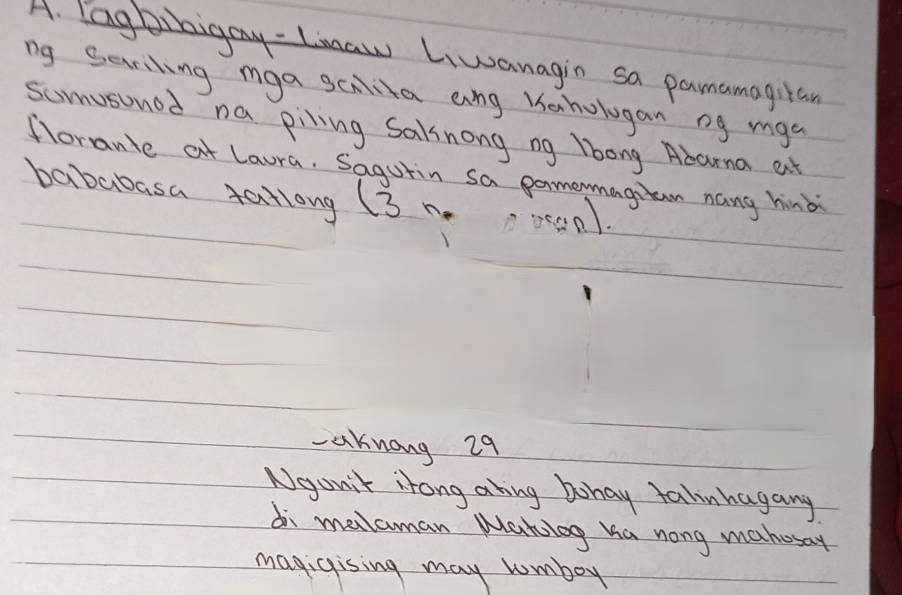 A. Pagbibigay-Linaw Liwanagin sa pamamagitan
ng sariling mga salita ang kahulugan ng mga
sumusunod na piling Saknong ng Ibong Adarna at
florante at Laura. Sagutin sa pamamagitan nang hindi
bababasa tatlong (3
Saknong 29
Ngunit itong ating buhay talinhagang
di malaman Matulog ka nang mahusay
magigising may lumbay